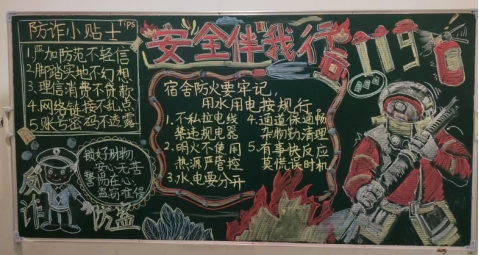 防诈小贴士 Tips
1.严加防范不轻信
2.脚踏实地不幻想
3.理信消费不贷款
4.网络链接不乱点
5.账号密码不透露
安全伴我行
119
宿舍防火要牢记,
用水用电按规行
1.不私拉电线
禁违规电器
2.明火不使用
热源严管控
3.水电要分开
4.通道保通畅
杂物勤清理
5.有事快反应
莫慌误时机
锁好财物
安心无苦
警而在心
防诈
防盗